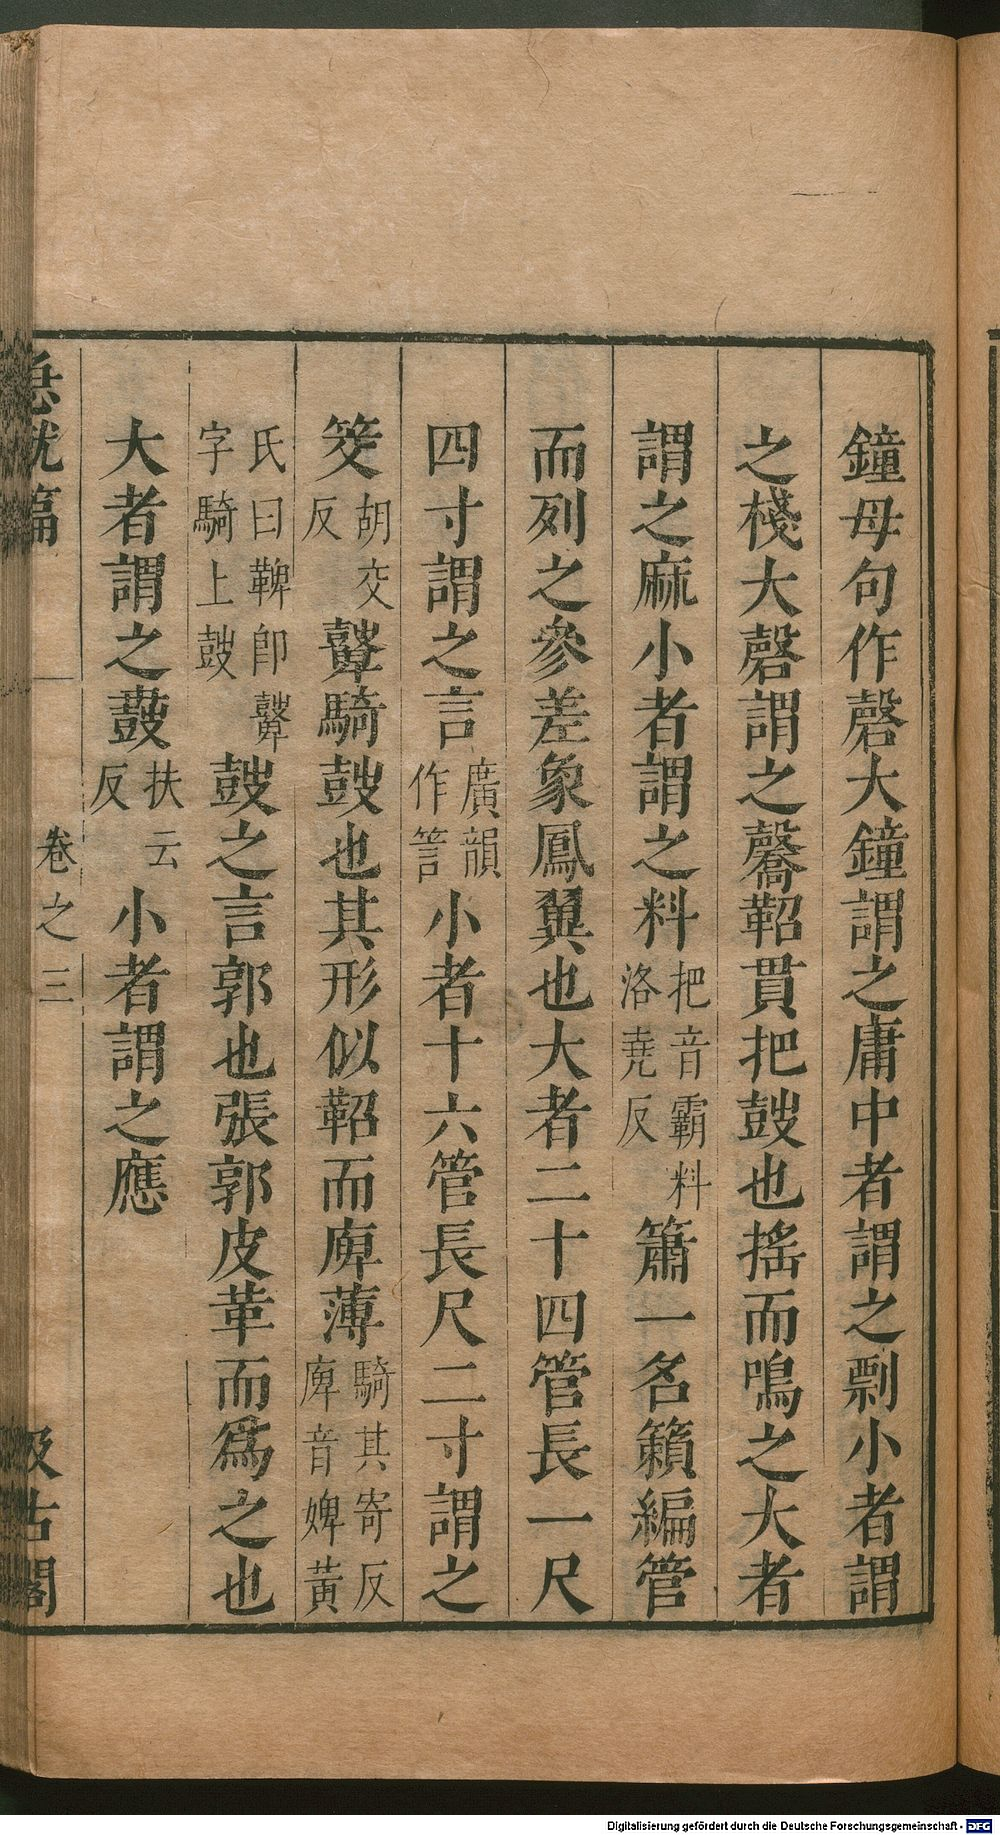 鐘母句作磬大鐘謂之庸中者謂之剽小者謂
之棧大磬謂之毊鞀貫把鼓也搖而鳴之大者
謂之麻小者謂之料把音霸料洛堯反簫一名籟編管
而列之參差象鳳翼也大者二十四管長一尺
四寸謂之言廣韻作䇾小者十六管長尺二寸謂之
筊胡交反鼙騎鼓也其形似鞀而庳薄騎其寄反庳音婢黃
氏曰鞞卽鼙字騎上鼓鼓之言郭也張郭皮革而爲之也
大者謂之鼖扶云反小者謂之應
急就篇 卷之三 汲古閣
Digitalisierung gefördert durch die Deutsche Forschungsgemeinschaft - DFG